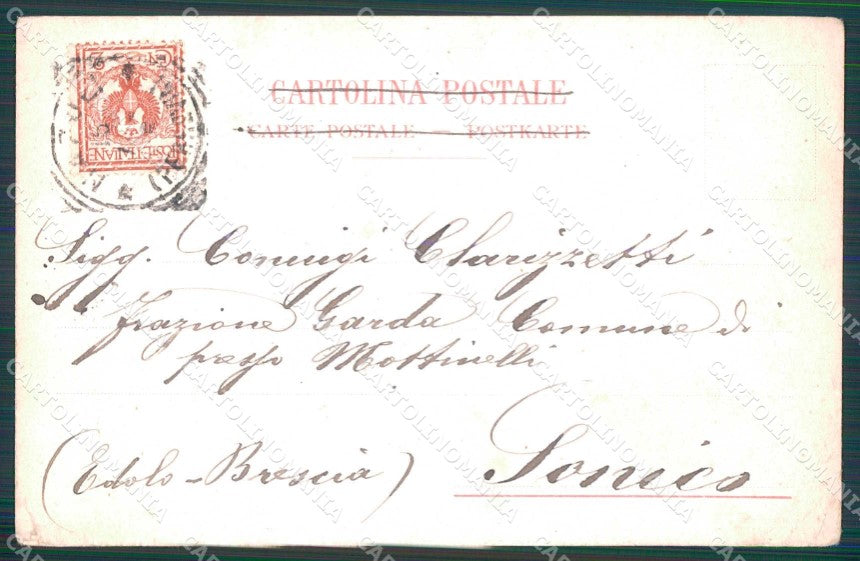 CARTOLINA POSTALE
CARTE POSTALE — POSTKARTE
POSTE ITALIANE
Sigg. Coniugi Clarizzetti
frazione Garda Comune di
presso Mottinelli
(Edolo - Brescia) Sonico
CARTOLINOMANIA